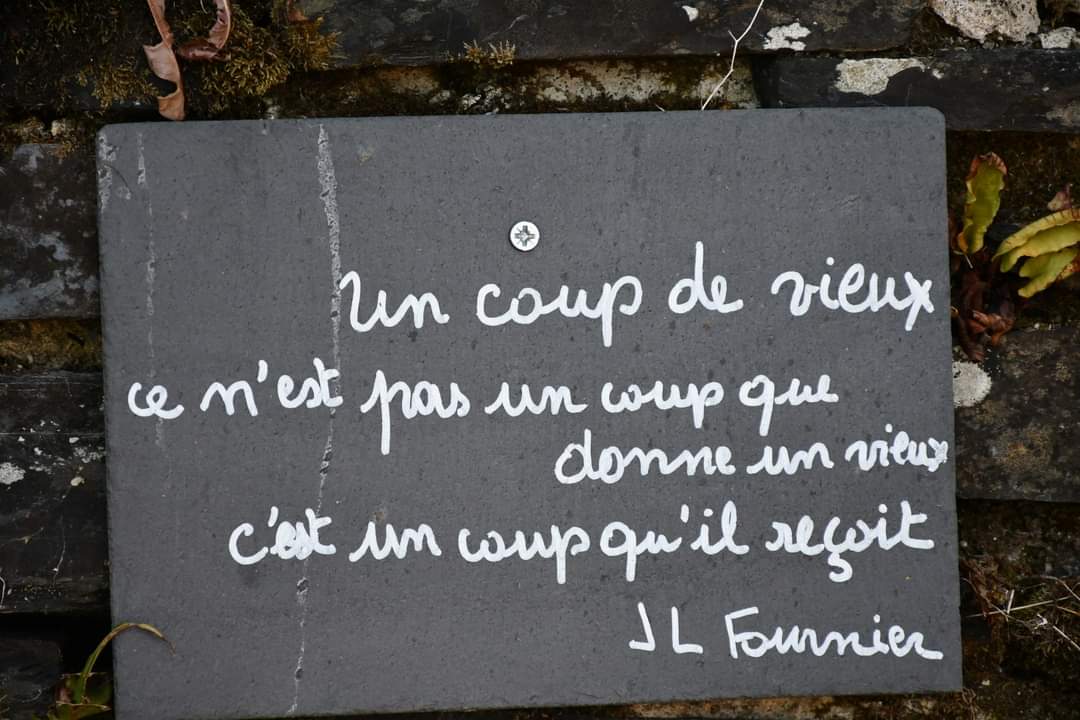 Un coup de vieux
ce n'est pas un coup que
donne un vieux
c'est un coup qu'il reçoit
J L Fournier